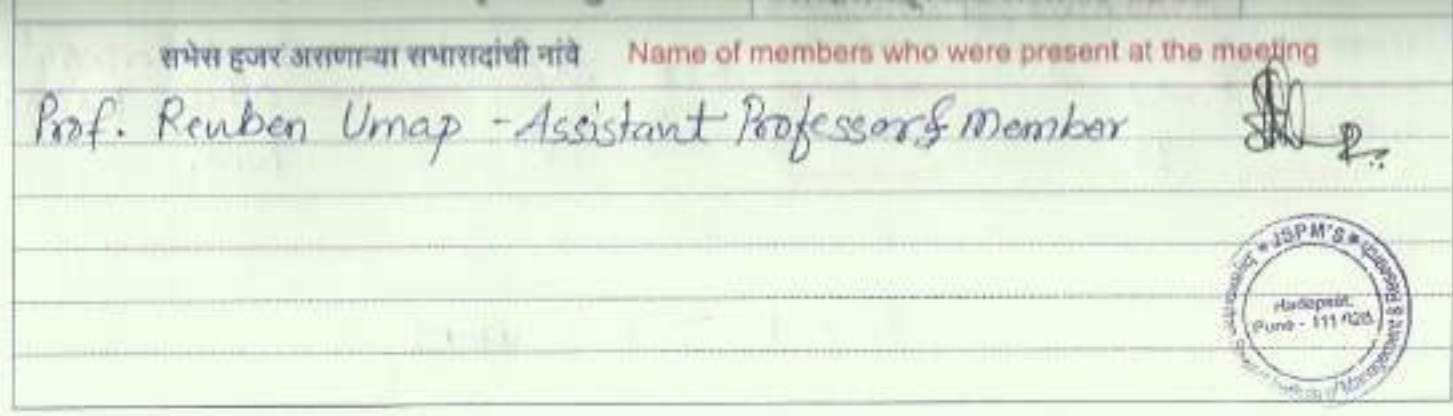 सभेस हजर असणाऱ्या सभासदांची नांवे Name of members who were present at the meeting
Prof. Reuben Umap - Assistant Professor & Member
* JSPM'S *
Hadapsar,
Pune -